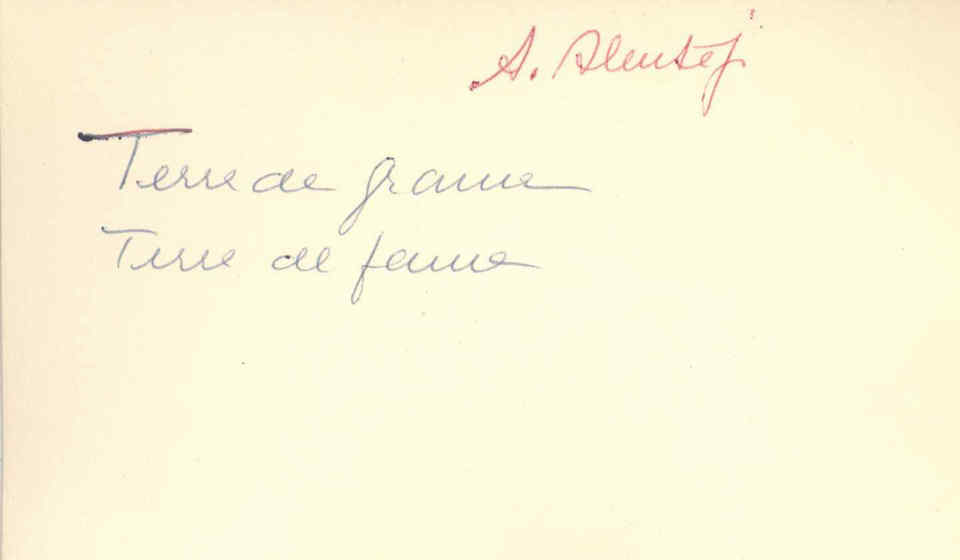 A. Alentej.
Terra de grama
Terra de fama